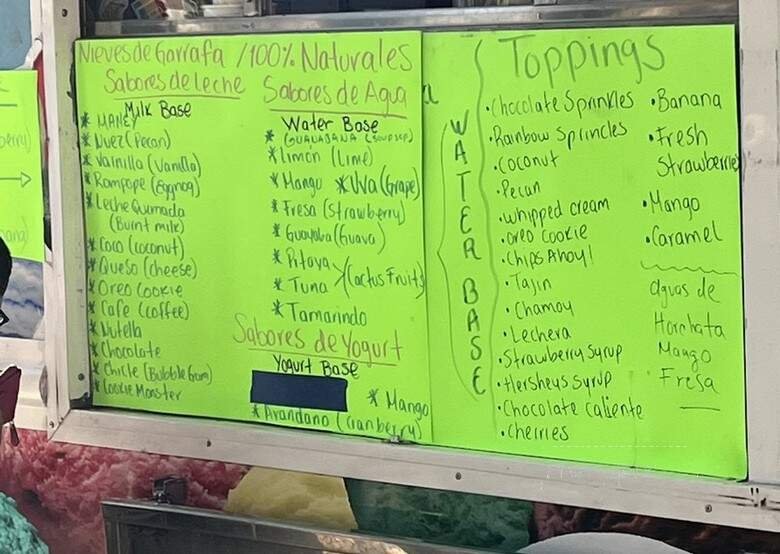 Nieves de Garrafa / 100% Naturales
Sabores de leche
Milk Base
* MAMEY
* Nuez (Pecan)
* Vainilla (Vanilla)
* Rompope (Eggnog)
* Leche Quemada
(Burnt milk)
* Coco (coconut)
* Queso (cheese)
* Oreo Cookie
* Cafe (coffee)
* Nutella
* Chocolate
* Chicle (Bubble Gum)
* Cookie Monster
Sabores de Agua
Water Base
* GUANABANA (SOURSOP)
* Limón (Lime)
* Mango * Uva (Grape)
* Fresa (Strawberry)
* Guayaba (Guava)
* Pitaya
* Tuna (Cactus Fruit)
* Tamarindo
Sabores de Yogurt
Yogurt Base
* Mango
* Arandano (Cranberry)
WATER BASE
Toppings
• Chocolate Sprinkles
• Rainbow Sprincles
• Coconut
• Pecan
• Whipped cream
• Oreo Cookie
• Chips Ahoy!
• Tajin
• Chamoy
• Lechera
• Strawberry Syrup
• Hersheys syrup
• Chocolate caliente
• Cherries
• Banana
• Fresh
Strawberries
• Mango
• Caramel
aguas de
Horchata
Mango
Fresa